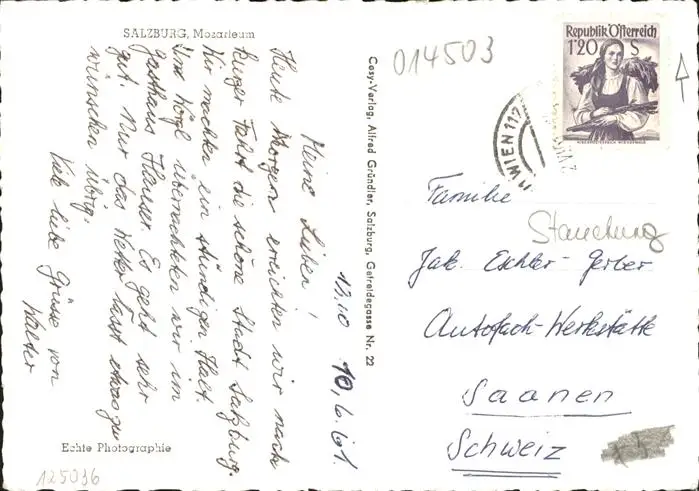 SALZBURG, Mozarteum
12.10 10.6.61.
Meine Lieben!
Heute Morgen erreichten wir nach
kurzer Fahrt die schöne Stadt Salzburg.
Wir machten ein stündigen Halt.
Und Wörgl übernachteten wir im
Gasthaus Hauser. Es geht sehr
gut. Nur das Wetter lässt etwas zu
wünschen übrig.
Viele liebe Grüsse von
Walter
Echte Photographie
125036
Cosy-Verlag, Alfred Gründler, Salzburg, Getreidegasse Nr. 22
014503
Republik Österreich
1'20 S
WIEN 117
Familie
Stauchung
Jak. Eschler-Gerber
Autofach-Werkstätte
Saanen
Schweiz